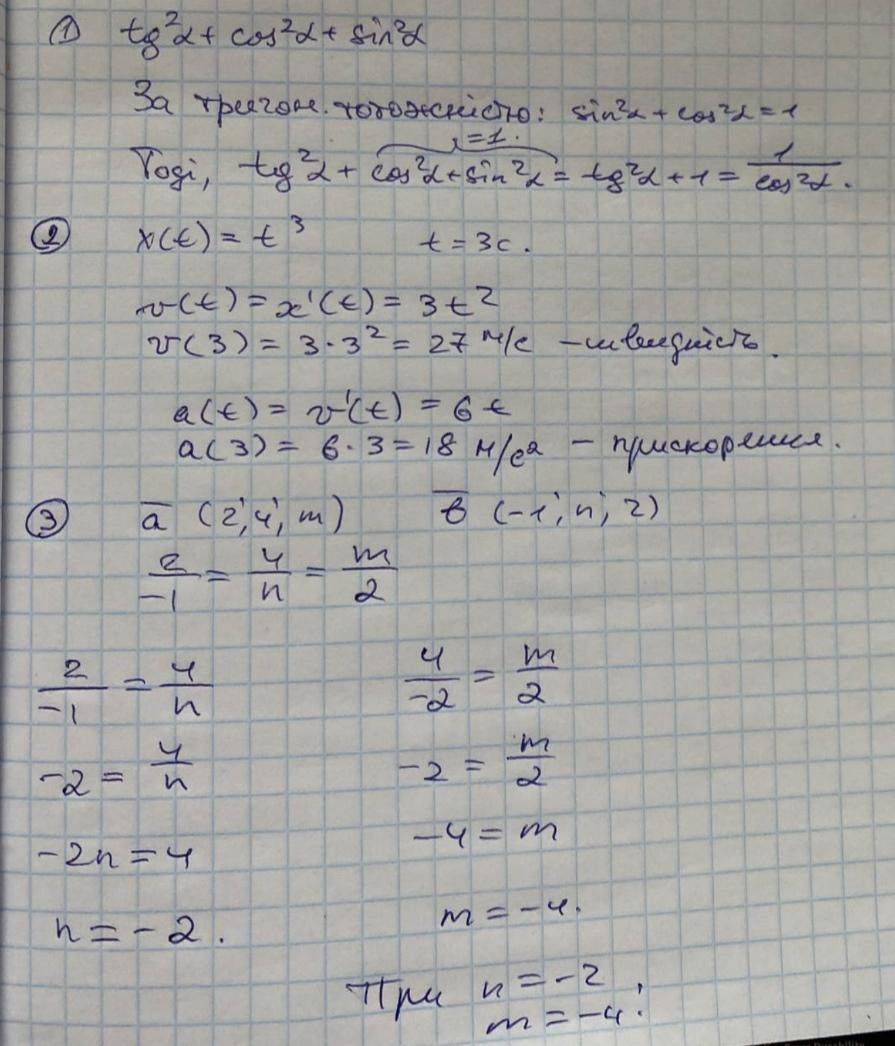 ① tg²α + cos²α + sin²α
За тригон. тотожністю: sin²α + cos²α = 1
=1.
Тоді, tg²α + cos²α + sin²α = tg²α + 1 = 1/cos²α.
② x(t) = t³ t = 3c.
v(t) = x'(t) = 3t²
v(3) = 3·3² = 27 м/с – швидкість.
a(t) = v'(t) = 6t
a(3) = 6·3 = 18 м/с² – прискорення.
③ a̅ (2; 4; m) b̅ (-1; n; 2)
2/-1 = 4/n = m/2
2/-1 = 4/n 4/-2 = m/2
-2 = 4/n -2 = m/2
-2n = 4 -4 = m
n = -2. m = -4.
При n = -2
m = -4.